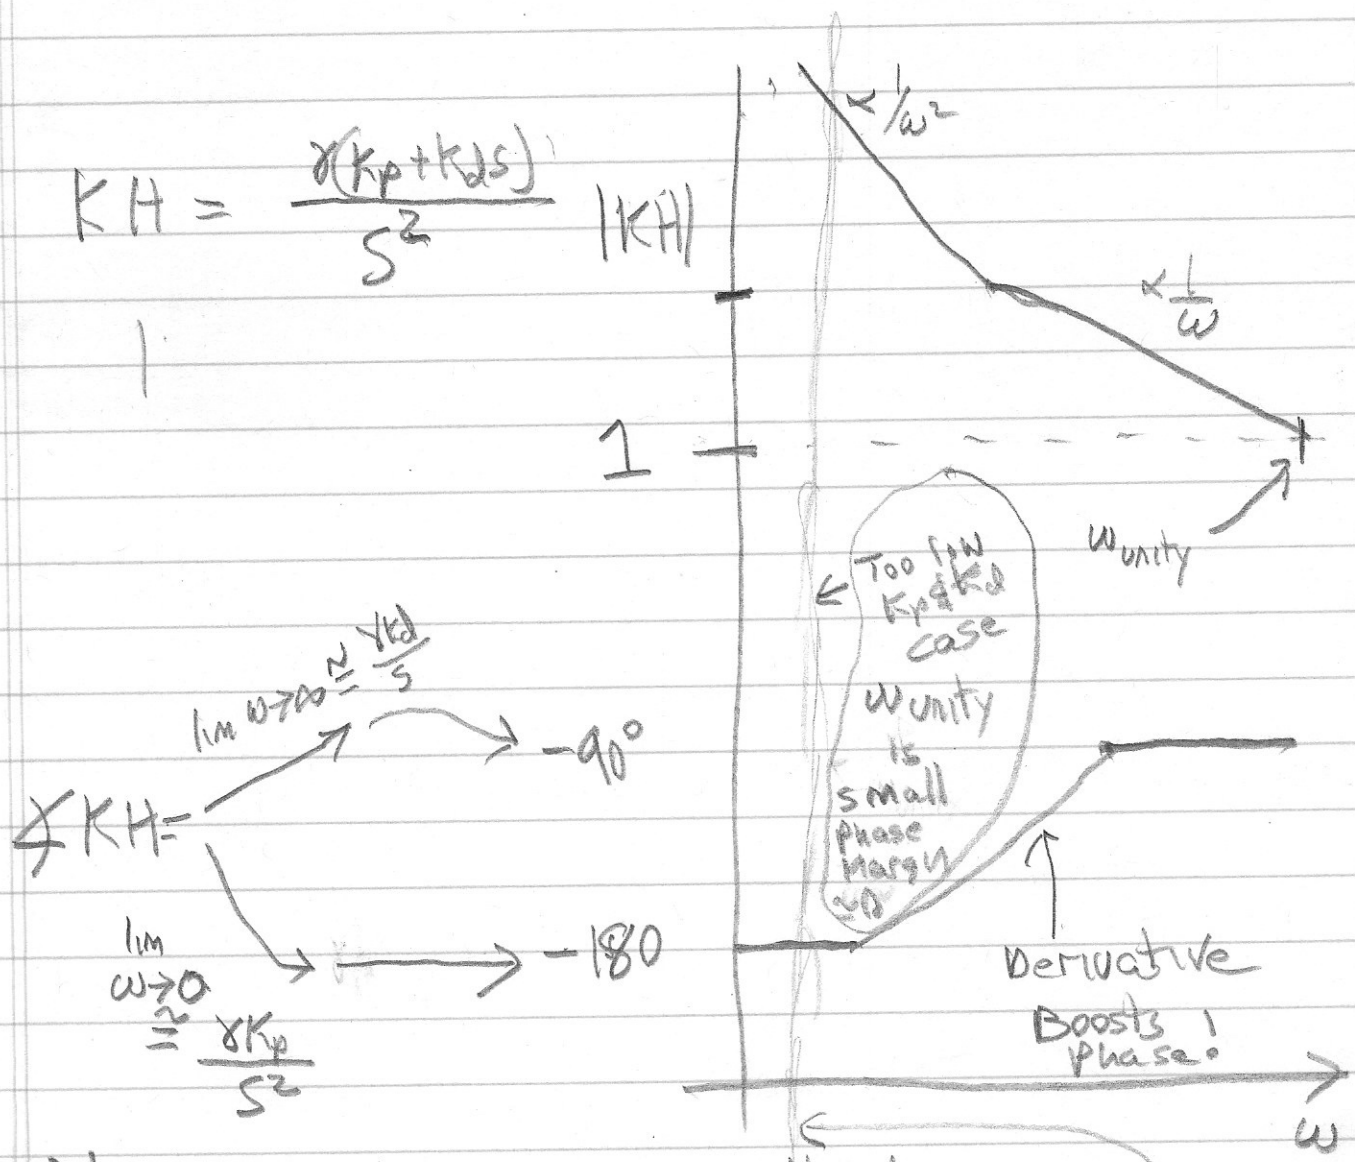 ∝ 1/ω²
KH = γ(Kp+Kds) / S²
|KH|
∝ 1/ω
1
ωunity
← Too low
Kp & Kd
case
ωunity
is
small
phase
margin
≈0
lim ω→∞ ≅ γKd/S
-90°
∡KH=
lim
ω→0
≅ γKp/S²
-180
Derivative
Boosts
phase!
ω